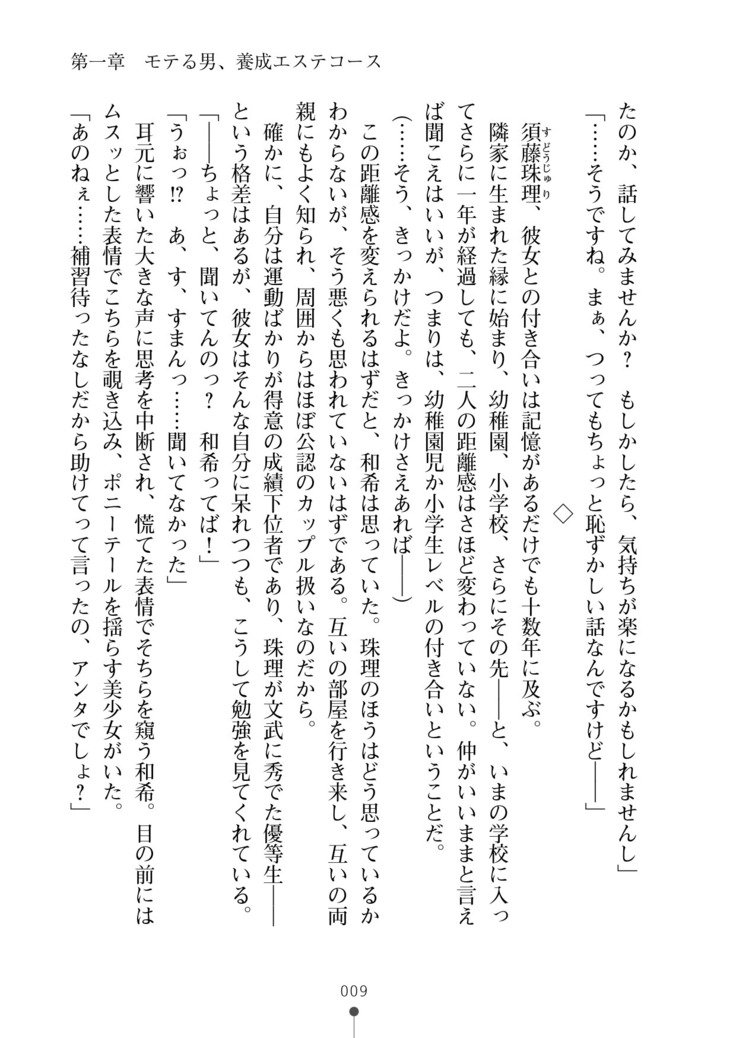 第一章　モテる男、養成エステコース
たのか、話してみませんか？　もしかしたら、気持ちが楽になるかもしれませんし」
「……そうですね。まぁ、つってもちょっと恥ずかしい話なんですけど――」
◇
須藤珠理、彼女との付き合いは記憶があるだけでも十数年に及ぶ。
すどうじゅり
隣家に生まれた縁に始まり、幼稚園、小学校、さらにその先――と、いまの学校に入っ
てさらに一年が経過しても、二人の距離感はさほど変わっていない。仲がいいままと言え
ば聞こえはいいが、つまりは、幼稚園児か小学生レベルの付き合いということだ。
（……そう、きっかけだよ。きっかけさえあれば――）
この距離感を変えられるはずだと、和希は思っていた。珠理のほうはどう思っているか
わからないが、そう悪くも思われていないはずである。互いの部屋を行き来し、互いの両
親にもよく知られ、周囲からはほぼ公認のカップル扱いなのだから。
確かに、自分は運動ばかりが得意の成績下位者であり、珠理が文武に秀でた優等生――
という格差はあるが、彼女はそんな自分に呆れつつも、こうして勉強を見てくれている。
「――ちょっと、聞いてんのっ？　和希ってば！」
「うぉっ!?　あ、す、すまんっ……聞いてなかった」
耳元に響いた大きな声に思考を中断され、慌てた表情でそちらを窺う和希。目の前には
ムスッとした表情でこちらを覗き込み、ポニーテールを揺らす美少女がいた。
「あのねぇ……補習待ったなしだから助けてって言ったの、アンタでしょ？」
009